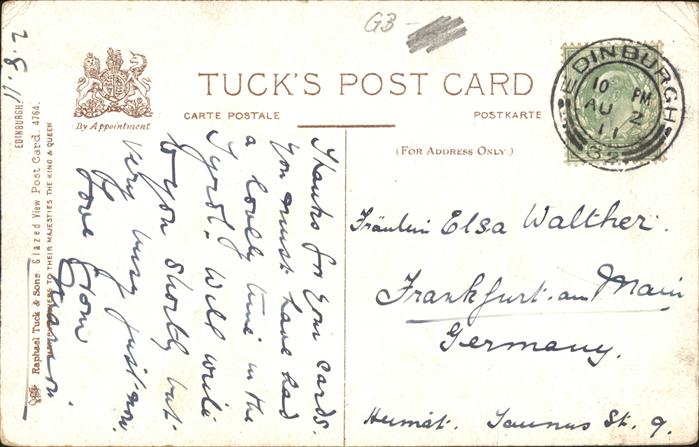 GB -
2.8.11.
TUCK'S POST CARD
CARTE POSTALE
POSTKARTE
By Appointment
(FOR ADDRESS ONLY.)
EDINBURGH
10 PM
AU 2
11
Thanks for your cards.
You must have had
a lovely time in the
Tyrol. Will write
to you shortly but
very busy just now.
Love from
Fräulein Elsa Walther.
Frankfurt-am Main
Germany.
Heimat. Taunus St. 9.
EDINBURGH.
Raphael Tuck & Sons Glazed View Post Card. 4764.
TO THEIR MAJESTIES THE KING & QUEEN